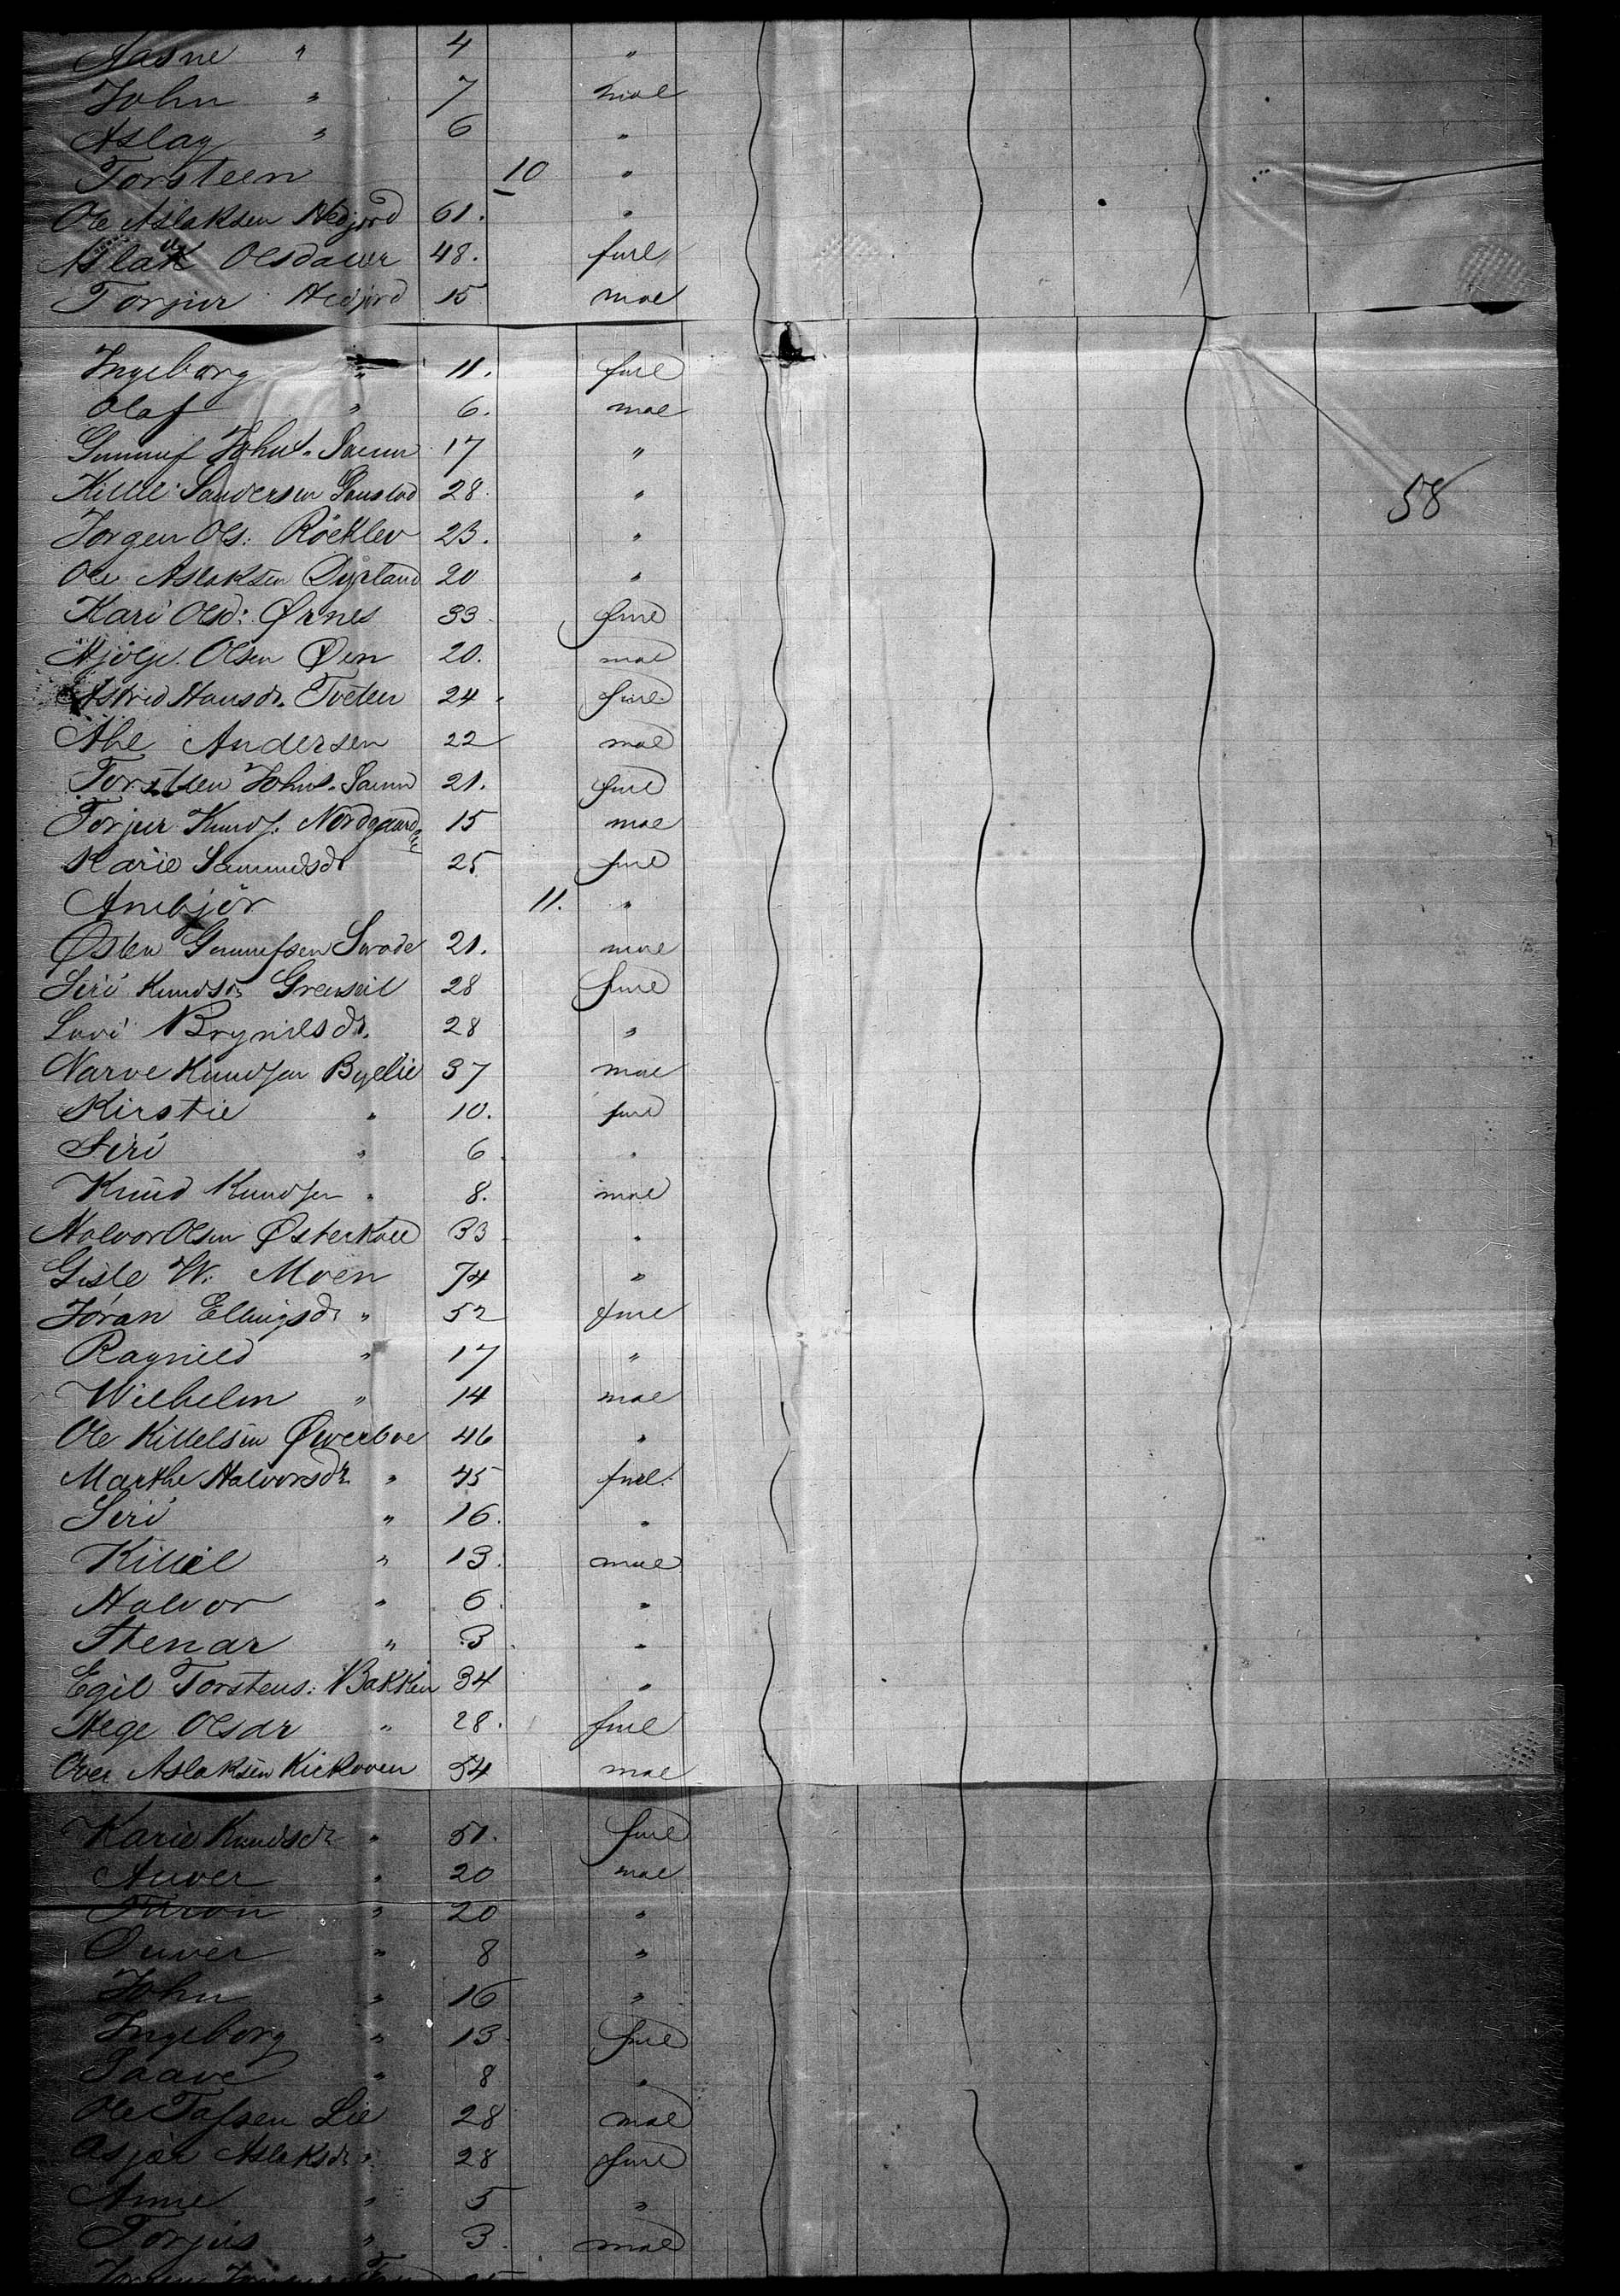 Aasne " 4 "
John " 7 mal
Aslag " 6 "
Torsteen 10 "
Ole Aslaksen Hedjord 61. "
Aslak Olsdatter 48. fml
Torjur Hedjord 15 mal
Ingeborg " 11. fml
Olaf " 6. mal
Gunnuf Johns. 17 "
Kittil Sandersen 28. "
Jörgen Ols: Röeklev 23. "
Ole Aslaksen Dyrland 20 "
Kari Olsd: Ørnes 33. fml
Hjölge Olsen Øen 20. mal
Astrid Hansdr. Tveten 24. fml
Ahe Andersen 22 mal
Torsteen Johns. 21. fml
Torjur Knuds. Nordgaarden 15 mal
Karie Samundsdr 25 fml
Anebjör 11. "
Østen Gunnufsen Svade 21. mal
Siri Knudsdr 28 fml
Brynilsdr. 28 "
Narve Knudsen Byelie 37 mal
Kirstie " 10. fml
Siri " 6. "
Knud Knudsen " 8. mal
Halvor Olsen Østerkall 33. "
Gisle W. Moen 74 "
Jöran Ellingsdr " 52 fml
Ragnild " 17 "
Wilhelm " 14 mal
Ole Kittelsen Øverboe 46 "
Marthe Halvorsdr " 45 fml.
Siri " 16. "
Kittil " 13. mal
Halvor " 6. "
Stenar " 3. "
Egil Torstens: Bakken 34 "
Hege Olsdr " 28. fml
Over Aslaksen 54 mal
Karie Knudsdr " 51. fml
Anver " 20 mal
" 20 "
Ouver " 8 "
John " 16 "
Ingeborg " 13. fml
Saave " 8 "
Ole Tafsen Lie 28 mal
Asjör Aslaksdr " 28 fml
Anne " 5 "
Torjus " 3. mal
58